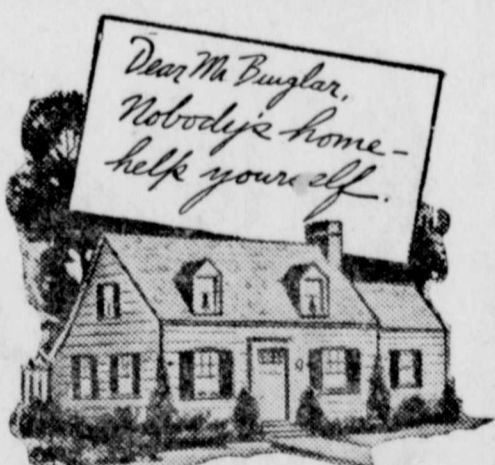 Dear Mr Burglar,
Nobody's home -
help yourself.